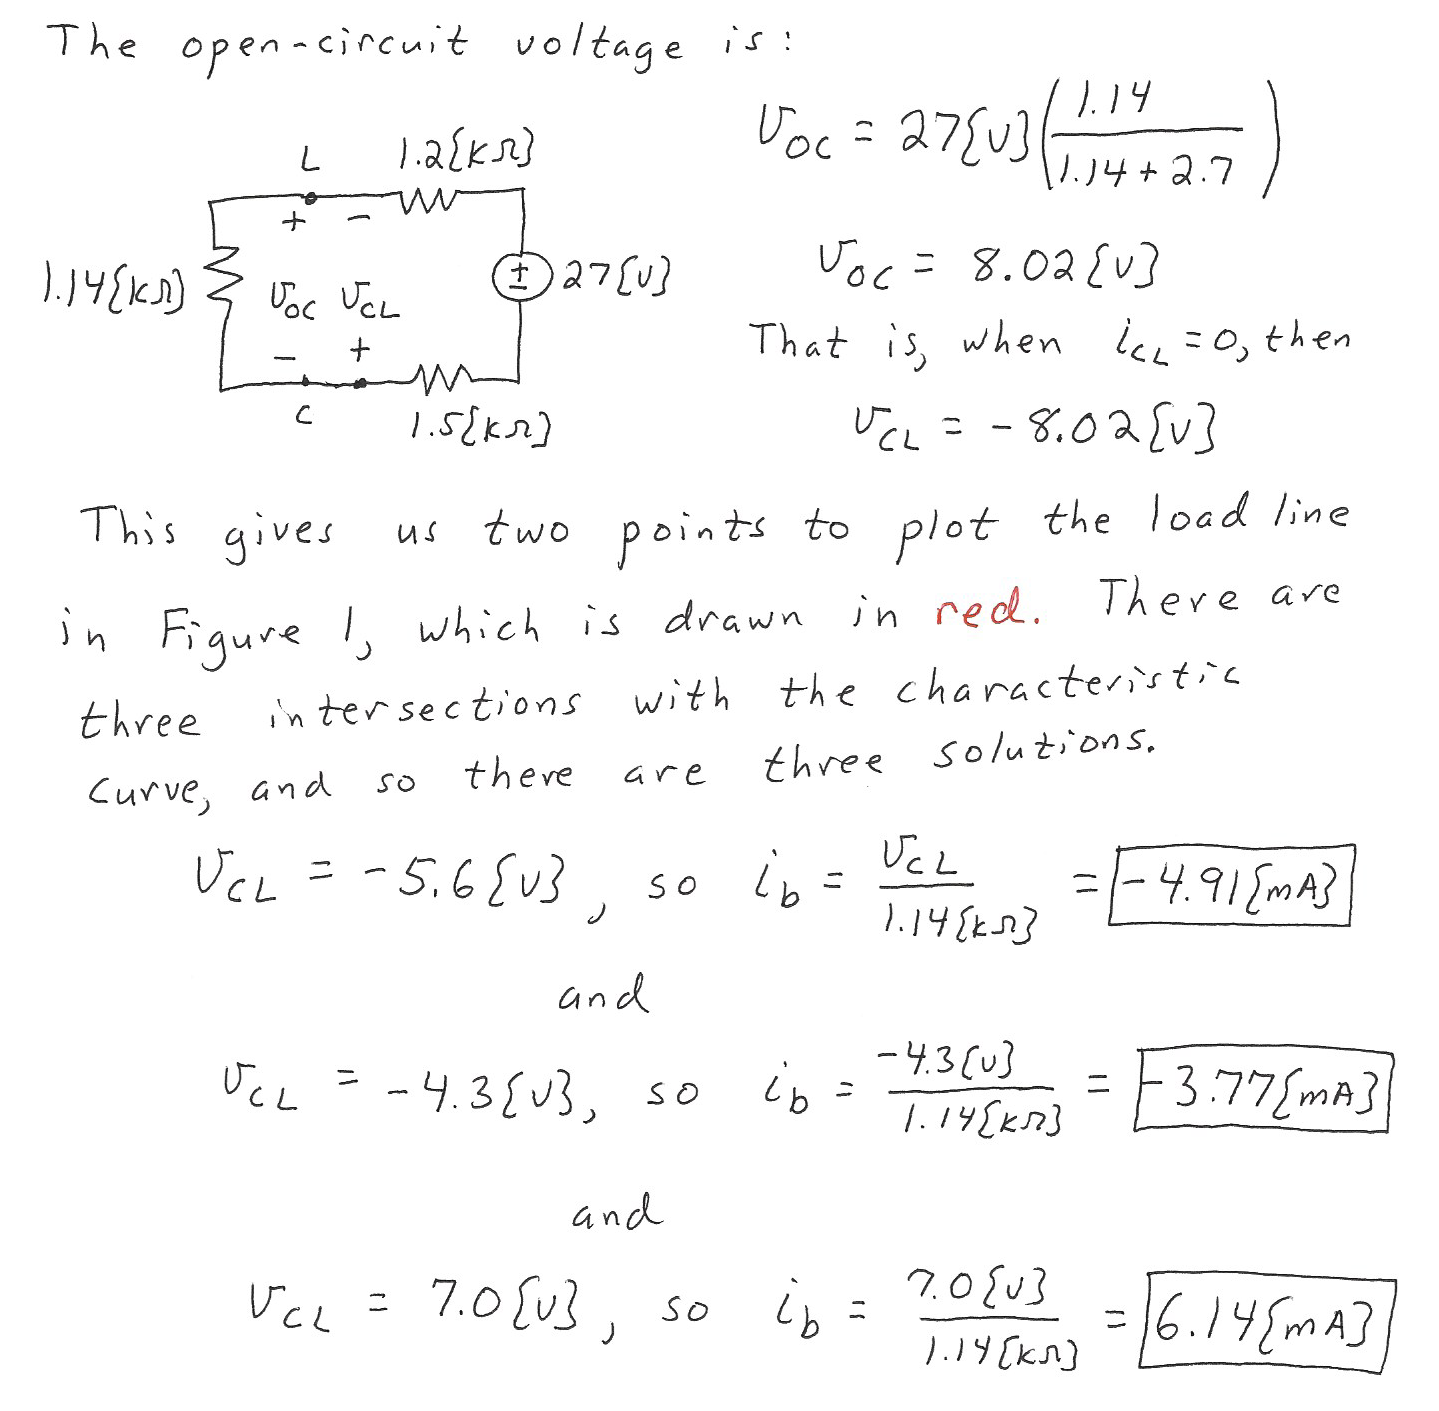 The open-circuit voltage is:
v_OC = 27{V}(1.14 / (1.14 + 2.7))
L 1.2{kΩ}
+ -
1.14{kΩ} v_OC v_CL ± 27{V}
- +
C 1.5{kΩ}
v_OC = 8.02{V}
That is, when i_CL = 0, then
v_CL = -8.02{V}
This gives us two points to plot the load line
in Figure 1, which is drawn in red. There are
three intersections with the characteristic
curve, and so there are three solutions.
v_CL = -5.6{V}, so i_b = v_CL / 1.14{kΩ} = -4.91{mA}
and
v_CL = -4.3{V}, so i_b = -4.3{V} / 1.14{kΩ} = -3.77{mA}
and
v_CL = 7.0{V}, so i_b = 7.0{V} / 1.14{kΩ} = 6.14{mA}